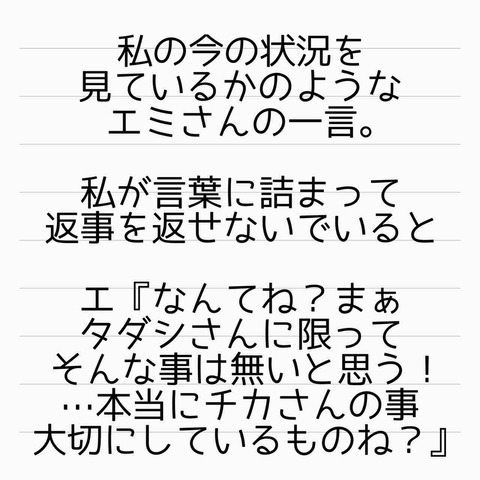 私の今の状況を
見ているかのような
エミさんの一言。
私が言葉に詰まって
返事を返せないでいると
エ『なんてね？まぁ
タダシさんに限って
そんな事は無いと思う！
…本当にチカさんの事
大切にしているものね？』